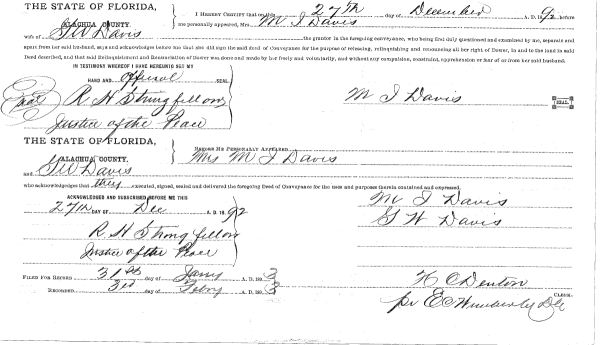 THE STATE OF FLORIDA,
ALACHUA COUNTY.
I HEREBY CERTIFY that on this 27th day of December A. D. 1892 before
me personally appeared, Mrs. M I Davis
wife of G W Davis the grantor in the foregoing conveyance, who being first duly questioned and examined by me, separate and
apart from her said husband, says and acknowledges before me that she did sign the said deed of Conveyance for the purpose of releasing, relinquishing and renouncing all her right of Dower, in and to the land in said
Deed described, and that said Relinquishment and Renunciation of Dower was done and made by her freely and voluntarily, and without any compulsion, constraint, apprehension or fear of or from her said husband.
IN TESTIMONY WHEREOF I HAVE HEREUNTO SET MY
HAND AND official SEAL.
Seal
R H Stringfellow
Justice of the Peace
M I Davis
SEAL.
THE STATE OF FLORIDA,
ALACHUA COUNTY.
BEFORE ME PERSONALLY APPEARED Mrs M I Davis
and G W Davis
who acknowledges that they executed, signed, sealed and delivered the foregoing Deed of Conveyance for the uses and purposes therein contained and expressed.
ACKNOWLEDGED AND SUBSCRIBED BEFORE ME THIS
27th DAY OF Dec A. D. 1892
R H Stringfellow
Justice of the Peace
M I Davis
G W Davis
FILED FOR RECORD 31st day of Jany A. D. 1893
RECORDED 3rd day of Feby A. D. 1893
H C Denton
CLERK.
pr E C Wimberly DC